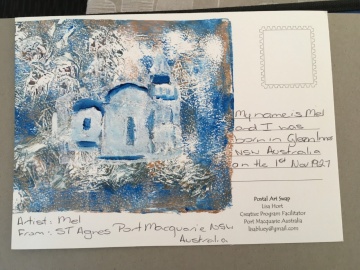 My name is Mel
and I was
born in Glen Innes
NSW Australia
on the 1st Nov 1927
Postal Art Swap
Lisa Hort
Creative Program Facilitator
Port Macquarie Australia
Artist: Mel
From: ST Agnes Port Macquarie NSW
Australia